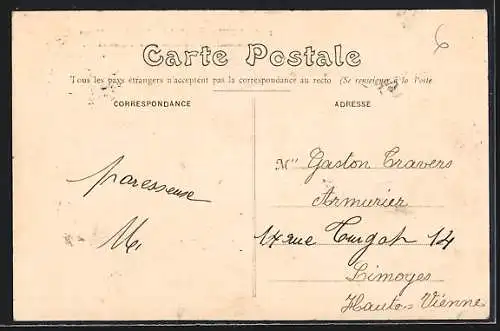 Carte Postale
Tous les pays étrangers n'acceptent pas la correspondance au recto (Se renseigner à la Poste
CORRESPONDANCE
ADRESSE
6
paresseuse
M.
Gaston Travers
Armurier
14 rue Turgot 14
Limoges
Haute-Vienne